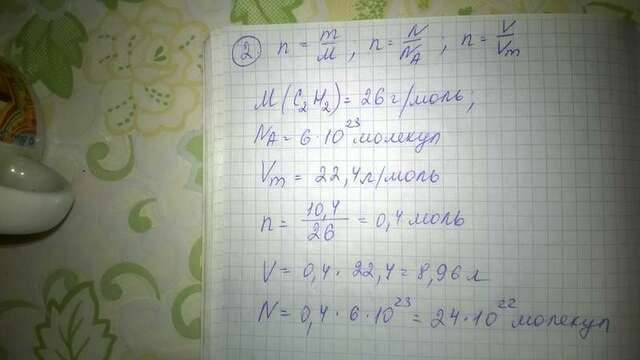 ② n = m/M, n = N/N_A; n = V/V_m
M(C₂H₂) = 26 г/моль;
N_A = 6·10²³ молекул
V_m = 22,4 л/моль
n = 10,4/26 = 0,4 моль
V = 0,4 · 22,4 = 8,96 л
N = 0,4 · 6 · 10²³ = 24·10²² молекул